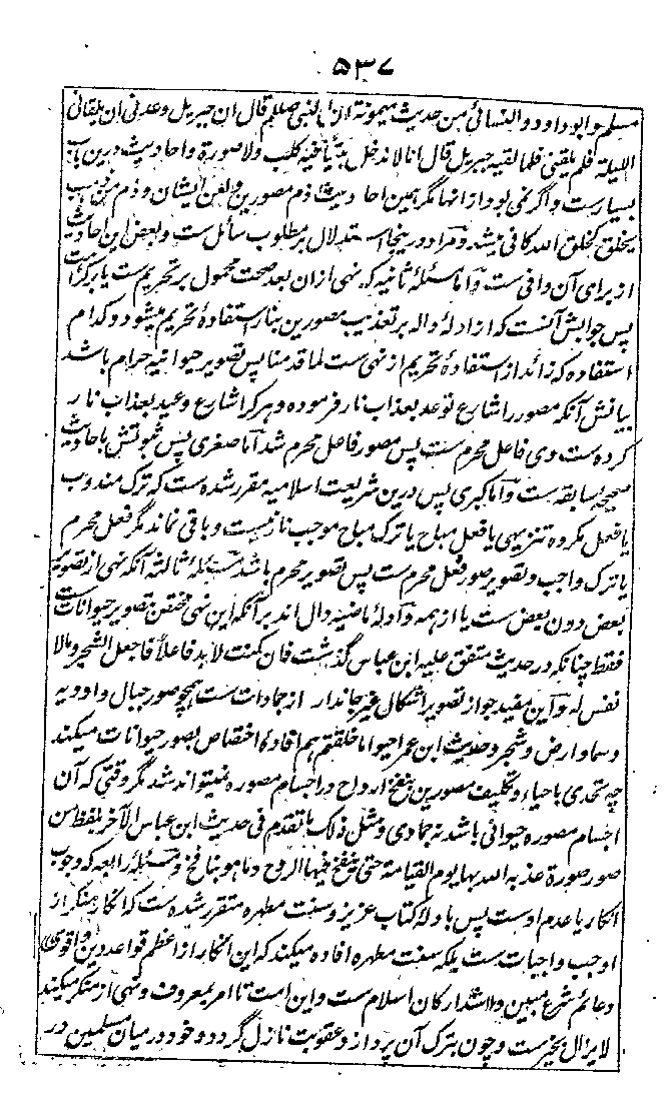 ۵۳۷
مسلم و ابو داود و النسائی من حدیث میمونة ان النبی صلعم قال ان جبریل وعدنی ان یلقانی
اللیلة فلم یلقنی فلما لقیه جبریل قال انا لا ندخل بیتا فیه کلب ولا صورة و احادیث درین باب
بسیارست و اگر نمی بود از انها مگر همین احادیث ذم مصورین و لعن ایشان و ذم من ذهب
یخلق کخلق الله کافی میشد و مراد درینجا استدلال بر مطلوب سائل ست و بعض این احادیث
از برای آن وافی ست و اما مسئلهٔ ثانیه که نهی ازان بعد صحت محمول بر تحریم ست یا بر کراهت
پس جوابش آنست که از ادلهٔ داله بر تعذیب مصورین بنار استفادهٔ تحریم میشود و کدام
استفاده که زائد از استفادهٔ تحریم از نهی ست لما قدمنا پس تصویر حیوانیه حرام باشد
بیانش آنکه مصور را شارع توعد بعذاب نار فرموده و هر کرا شارع وعید بعذاب نار
کرده ست وی فاعل محرم ست پس مصور فاعل محرم شد اما صغری پس ثبوتش باحادیث
صحیحه سابقه ست و اما کبری پس درین شریعت اسلامیه مقرر شده ست که ترک مندوب
یا فعل مکروه تنزیهی یا فعل مباح یا ترک مباح موجب نار نیست و باقی نماند مگر فعل محرم
یا ترک واجب و تصویر صور فعل محرم ست پس تصویر محرم باشد مسئلهٔ ثالثه آنکه نهی از تصویر
بعض دون بعض ست یا از همه و ادلهٔ ماضیه دال اند بر آنکه این نهی مختص بتصویر حیوانات ست
فقط چنانکه در حدیث متفق علیه ابن عباس گذشت فان کنت لابد فاعلا فاجعل الشجر و ما لا
نفس له و این مفید جواز تصویر اشکال غیر جاندار از جمادات ست همچو صور جبال و اودیه
و سما و ارض و شجر و حدیث ابن عمر احیوا ما خلقتم هم افادهٔ اختصاص بصور حیوانات میکند
چه تحدی باحیاء و تکلیف مصورین بنفخ ارواح در اجسام مصوره نمیتواند شد مگر وقتی که آن
اجسام مصوره حیوانی باشد نه جمادی و مثل ذلک ما تقدم فی حدیث ابن عباس الآخر بلفظ من
صور صورة عذبه الله بها یوم القیامة حتی ینفخ فیها الروح وما هو بنافخ و مسئلهٔ رابعه که وجوب
انکار یا عدم اوست پس بادلهٔ کتاب عزیز و سنت مطهره متقرر شده ست که انکار منکر از
اوجب واجبات ست بلکه سنت مطهره افاده میکند که این انکار از اعظم قواعد دین و اقوی
دعائم شرع مبین و اشد ارکان اسلام ست و این امت تا امر بمعروف و نهی از منکر میکند
لا یزال بخیرست و چون بترک آن پردازد عقوبت نازل گردد و خود درمیان مسلمین در